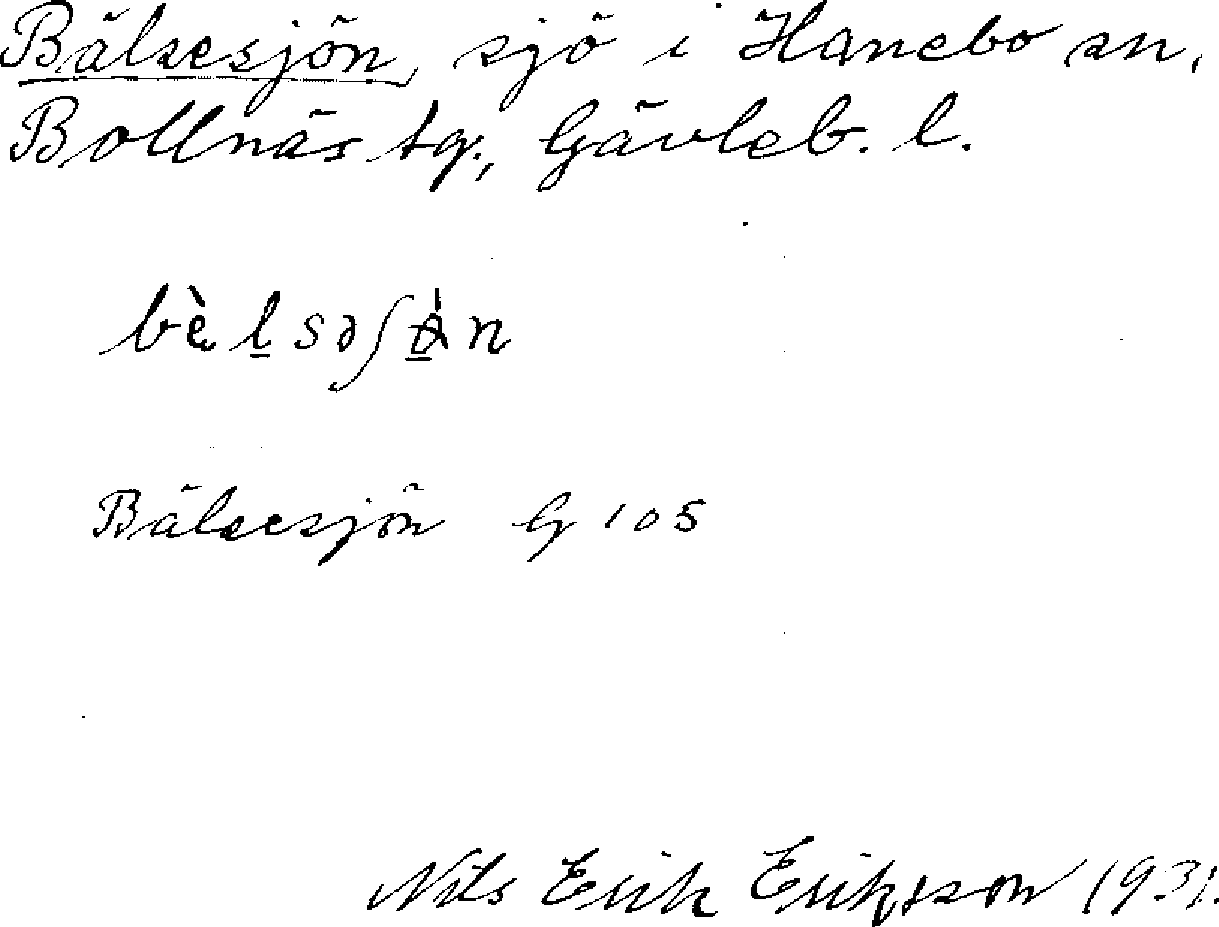 Bälsesjön, sjö i Hanebo sn,
Bollnäs tg., Gävleb. l.
Bälsesjön G 105
Nils Erik Eriksson 1931.